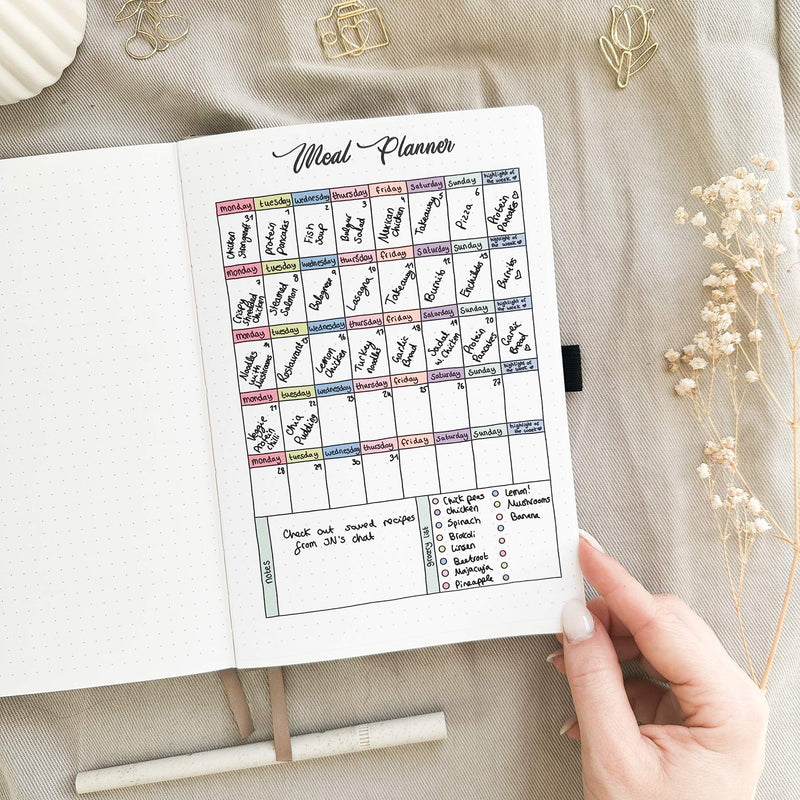 Meal Planner
monday tuesday wednesday thursday friday saturday sunday highlight of
the week
31 1 2 3 4 5 6
Chicken
Protein
Pancakes
Fish
Soup
Bulgur
Salad
Mexican
Chicken
Takeaway
Pizza
Protein
Pancakes ♡
monday tuesday wednesday thursday friday saturday sunday highlight of
the week
7 8 9 10 11 12 13
Crispy
Shredded
Chicken
Steamed
Salmon
Bolognese
Lasagna
Takeaway
Burrito
Enchiladas
Burritos ♡
monday tuesday wednesday thursday friday saturday sunday highlight of
the week
16 17 18 19 20
Noodles
with
Mushrooms
Restaurant
Lemon
Chicken
Turkey
noodles
Garlic
Bread
Salad
w Chicken
Protein
Pancakes
Garlic
Bread ♡
monday tuesday wednesday thursday friday saturday sunday highlight of
the week
21 22 23 24 25 26 27
Veggie
Protein
chili
Chia
Pudding
monday tuesday wednesday thursday friday saturday sunday highlight of
the week
28 29 30 31
notes
Check out saved recipes
from JN's chat
grocery list
Chick peas
Chicken
Spinach
Brocoli
Linsen
Beetroot
Maracuja
Pineapple
Lemon!
Mushrooms
Banana